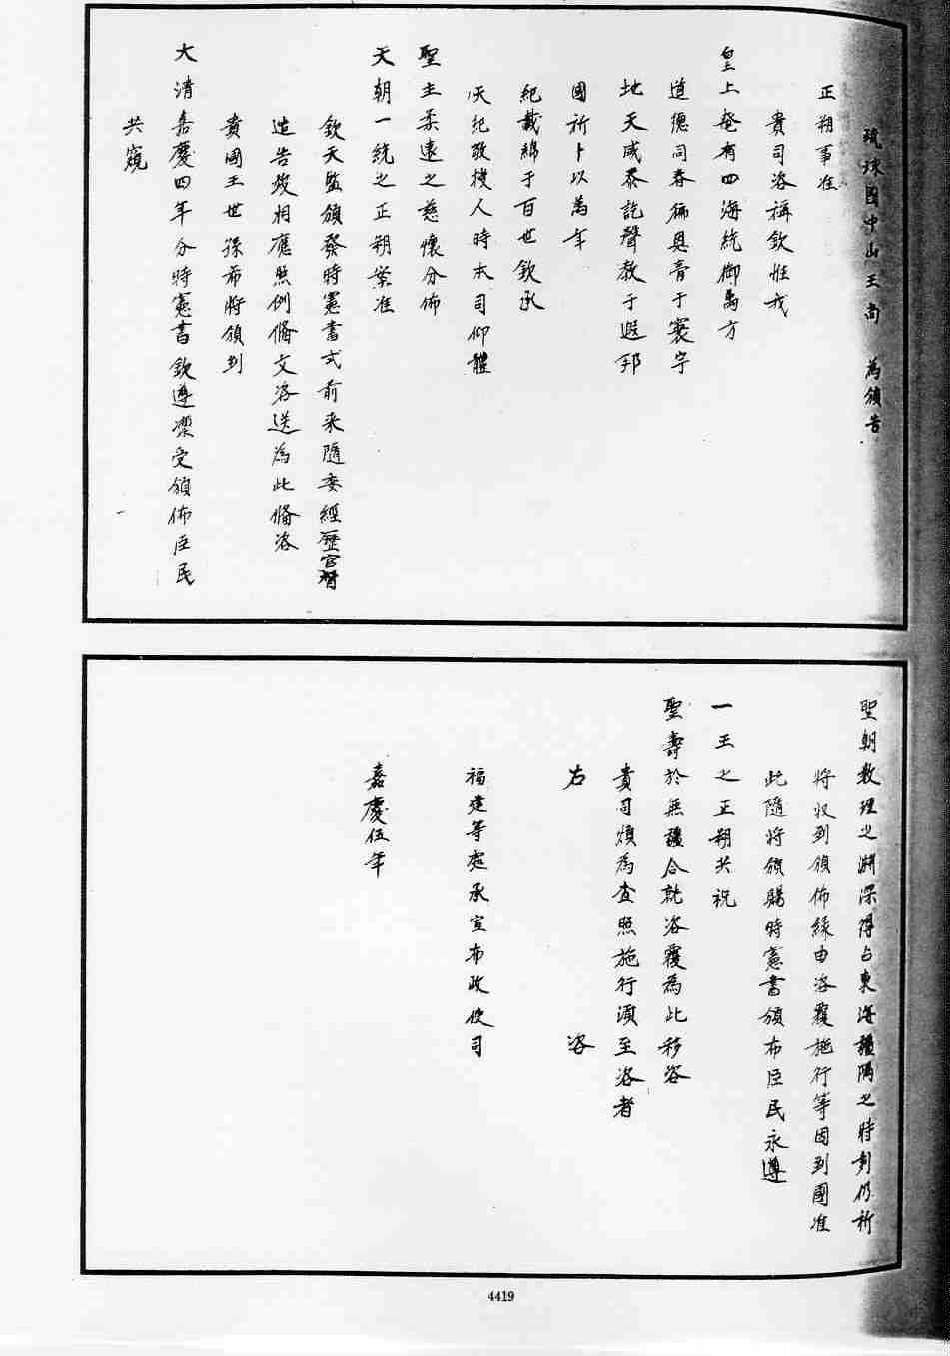 琉球國中山王尚　為頒告
正朔事准
貴司洛稱欽惟我
皇上奄有四海統御萬方
道德同春徧恩膏于寰宇
地天咸泰訖聲教于遐邦
國祈卜以萬年
紀載綿于百世欽承
天紀敬授人時本司仰體
聖主柔遠之慈懷分佈
天朝一統之正朔案准
欽天監頒發時憲書式前來隨委經歷官督
造告竣相應照例俻文洛送為此俻洛
貴國王世孫希將頒到
大清嘉慶四年分時憲書欽遵凜受頒佈臣民
共窺
聖朝教理之淵深得占東海疆隅之時刻仍祈
將收到頒佈緣由洛覆施行等因到國准
此隨將頒賜時憲書頒布臣民永遵
一王之正朔共祝
聖壽於無疆合就洛覆為此移咨
貴司煩為查照施行須至洛者
右　　咨
福建等處承宣布政使司
嘉慶伍年
4419